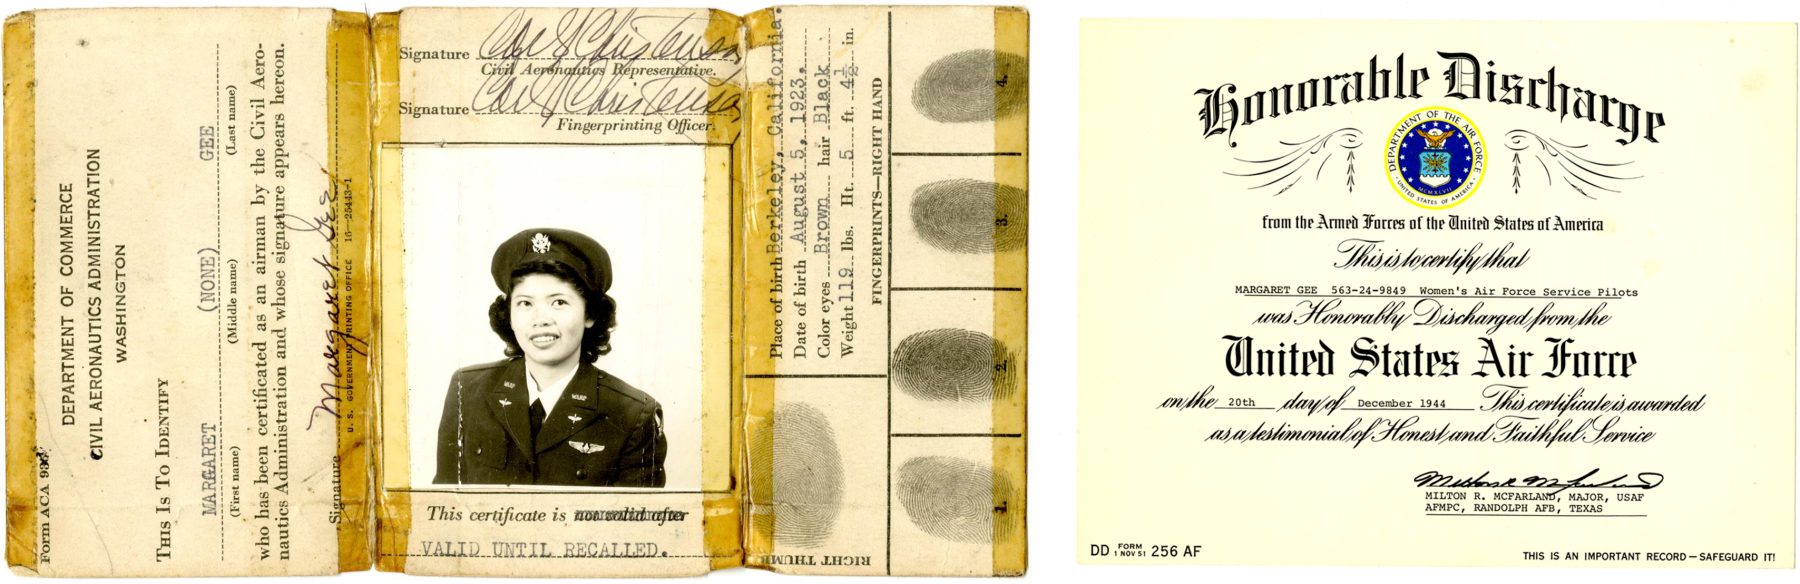 Form ACA 935
DEPARTMENT OF COMMERCE
CIVIL AERONAUTICS ADMINISTRATION
WASHINGTON
THIS IS TO IDENTIFY
MARGARET (NONE) GEE
(First name) (Middle name) (Last name)
who has been certificated as an airman by the Civil Aero-
nautics Administration and whose signature appears hereon.
Signature Margaret Gee
U. S. GOVERNMENT PRINTING OFFICE 16—25443-1
Signature Carl J Christensen
Civil Aeronautics Representative.
Signature Carl J Christensen
Fingerprinting Officer.
WASP
WASP
This certificate is not valid after
VALID UNTIL RECALLED.
Place of birth Berkeley, California.
Date of birth August 5, 1923.
Color eyes Brown hair Black
Weight 119 lbs. Ht. 5 ft. 4½ in.
FINGERPRINTS—RIGHT HAND
RIGHT THUMB
1.
2.
3.
4.
Honorable Discharge
DEPARTMENT OF THE AIR FORCE
MCMXLVII
UNITED STATES OF AMERICA
from the Armed Forces of the United States of America
This is to certify that
MARGARET GEE 563-24-9849 Women's Air Force Service Pilots
was Honorably Discharged from the
United States Air Force
on the 20th day of December 1944 This certificate is awarded
as a testimonial of Honest and Faithful Service
Milton R McFarland
MILTON R. MCFARLAND, MAJOR, USAF
AFMPC, RANDOLPH AFB, TEXAS
DD FORM 1 NOV 51 256 AF
THIS IS AN IMPORTANT RECORD—SAFEGUARD IT!